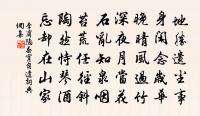 地勝遺塵事
身閑念歲華
晚晴風過竹
深夜月當花
石亂知泉咽
苔荒任徑斜
陶然恃琴酒
忘却在山家
李商隱春宵自遣詞典
網集